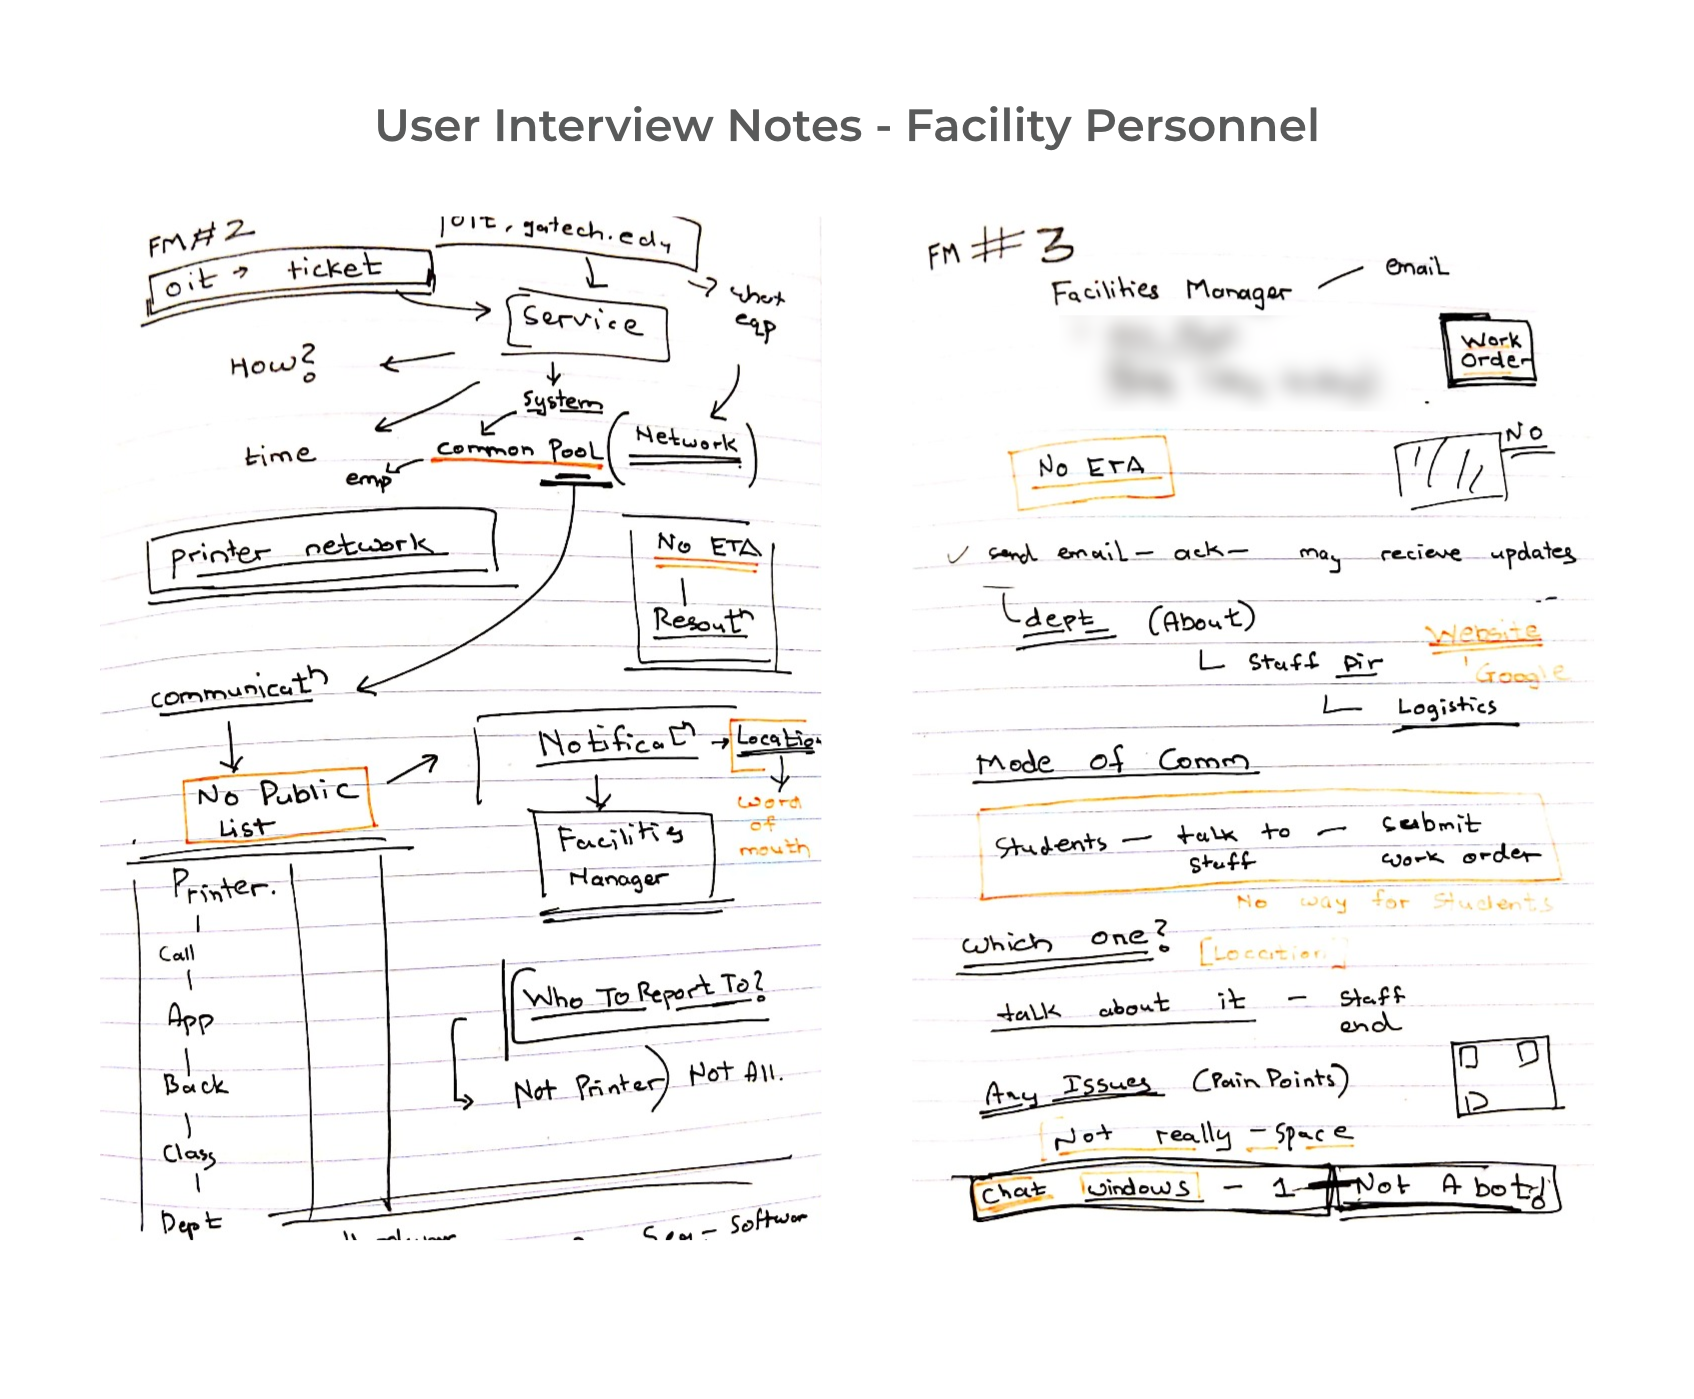 User Interview Notes - Facility Personnel
FM#2
oit.gatech.edu
oit → ticket
→ what
eqp
Service
How?
System
time
common Pool
(Network)
emp
printer network
No ETA
Resoutn
communicatn
Notificatn → Locatio
No Public
List
word
of
mouth
Facilities
Manager
Printer.
Call
App
Back
Class
Dept
Who To Report To?
Not Printer) Not All.
- Softwar
FM #3
Facilities Manager
email
Work
Order
No ETA
NO
✓ send email - ack - may recieve updates
dept (About)
Staff Dir
Website
Google
Logistics
Mode of Comm
Students - talk to - submit
staff work order
No way for Students
Which one? [Location]
talk about it - staff
end
Any Issues (Pain Points)
Not really - space
Chat windows - 1 Not A bot!